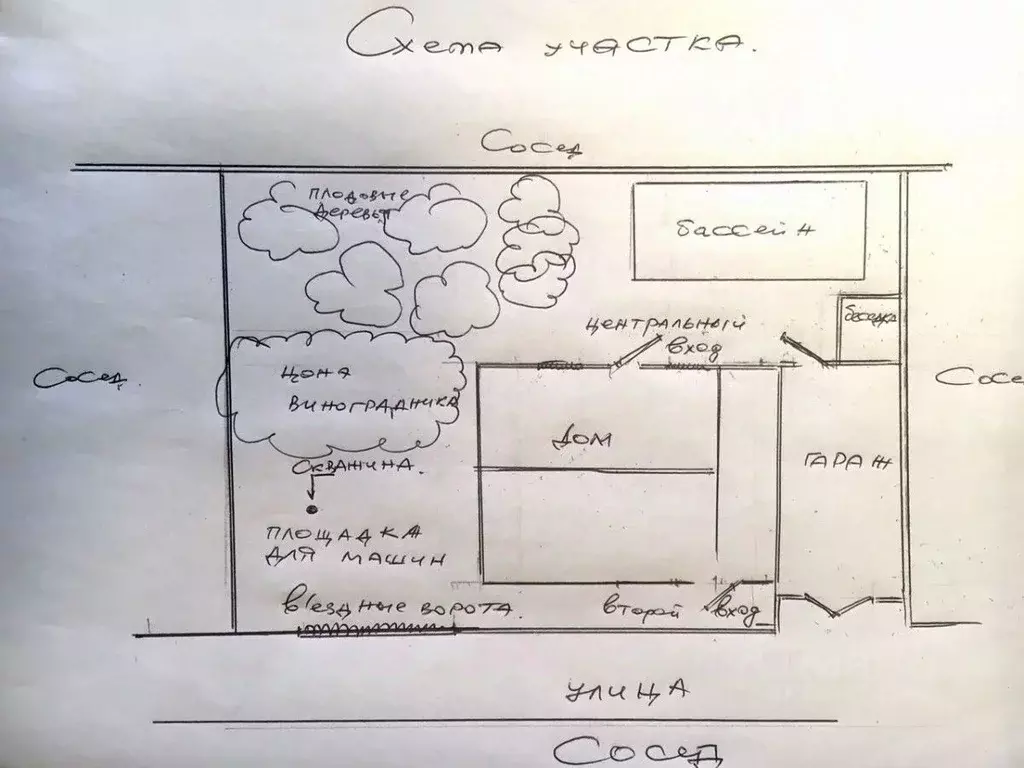 Схема участка.
Сосед
плодовые
деревья
бассейн
центральный
вход
беседка
Сосед.
Сосе
цона
виноградника
дом
гараж
скважина.
площадка
для машин
въездные ворота.
второй вход
улица
Сосед